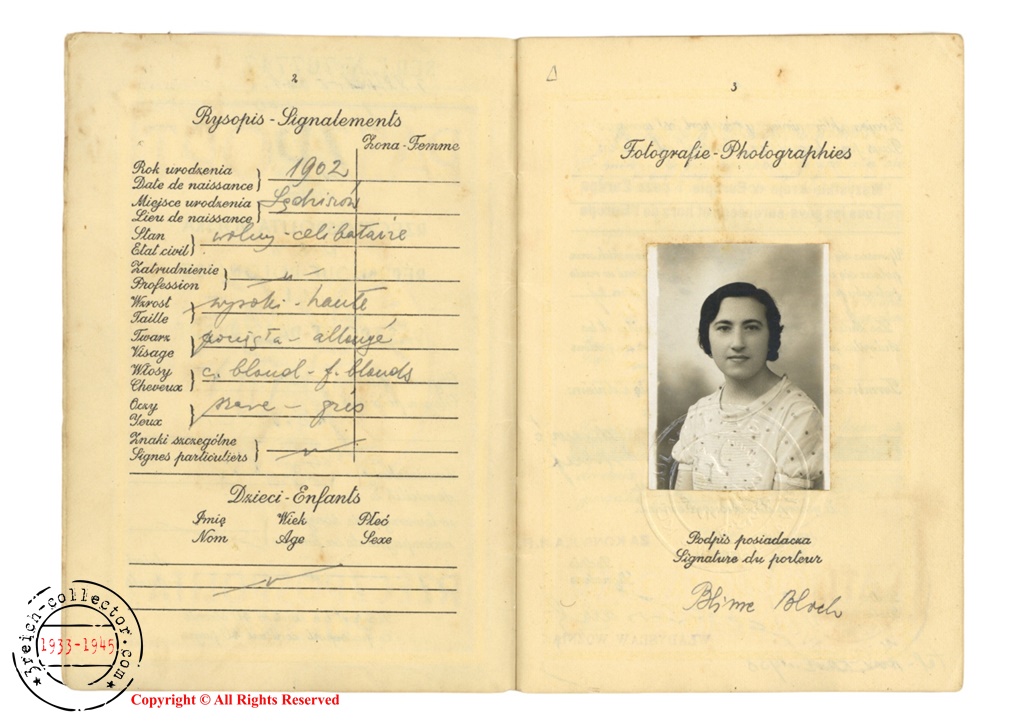 2
Rysopis - Signalements
Żona - Femme
Rok urodzenia
Date de naissance
1902
Miejsce urodzenia
Lieu de naissance
Sędziszów
Stan
Etat civil
wolny - celibataire
Zatrudnienie
Profession
Wzrost
Taille
wysoki - haute
Twarz
Visage
allongé
Włosy
Cheveux
c. blond - f. blonds
Oczy
Yeux
szare - gris
Znaki szczególne
Signes particuliers
Dzieci - Enfants
Imię Wiek Płeć
Nom Age Sexe
3
Fotografie - Photographies
Podpis posiadacza
Signature du porteur
Blime Bloch
3reich-collector.com
1933-1945
Copyright © All Rights Reserved